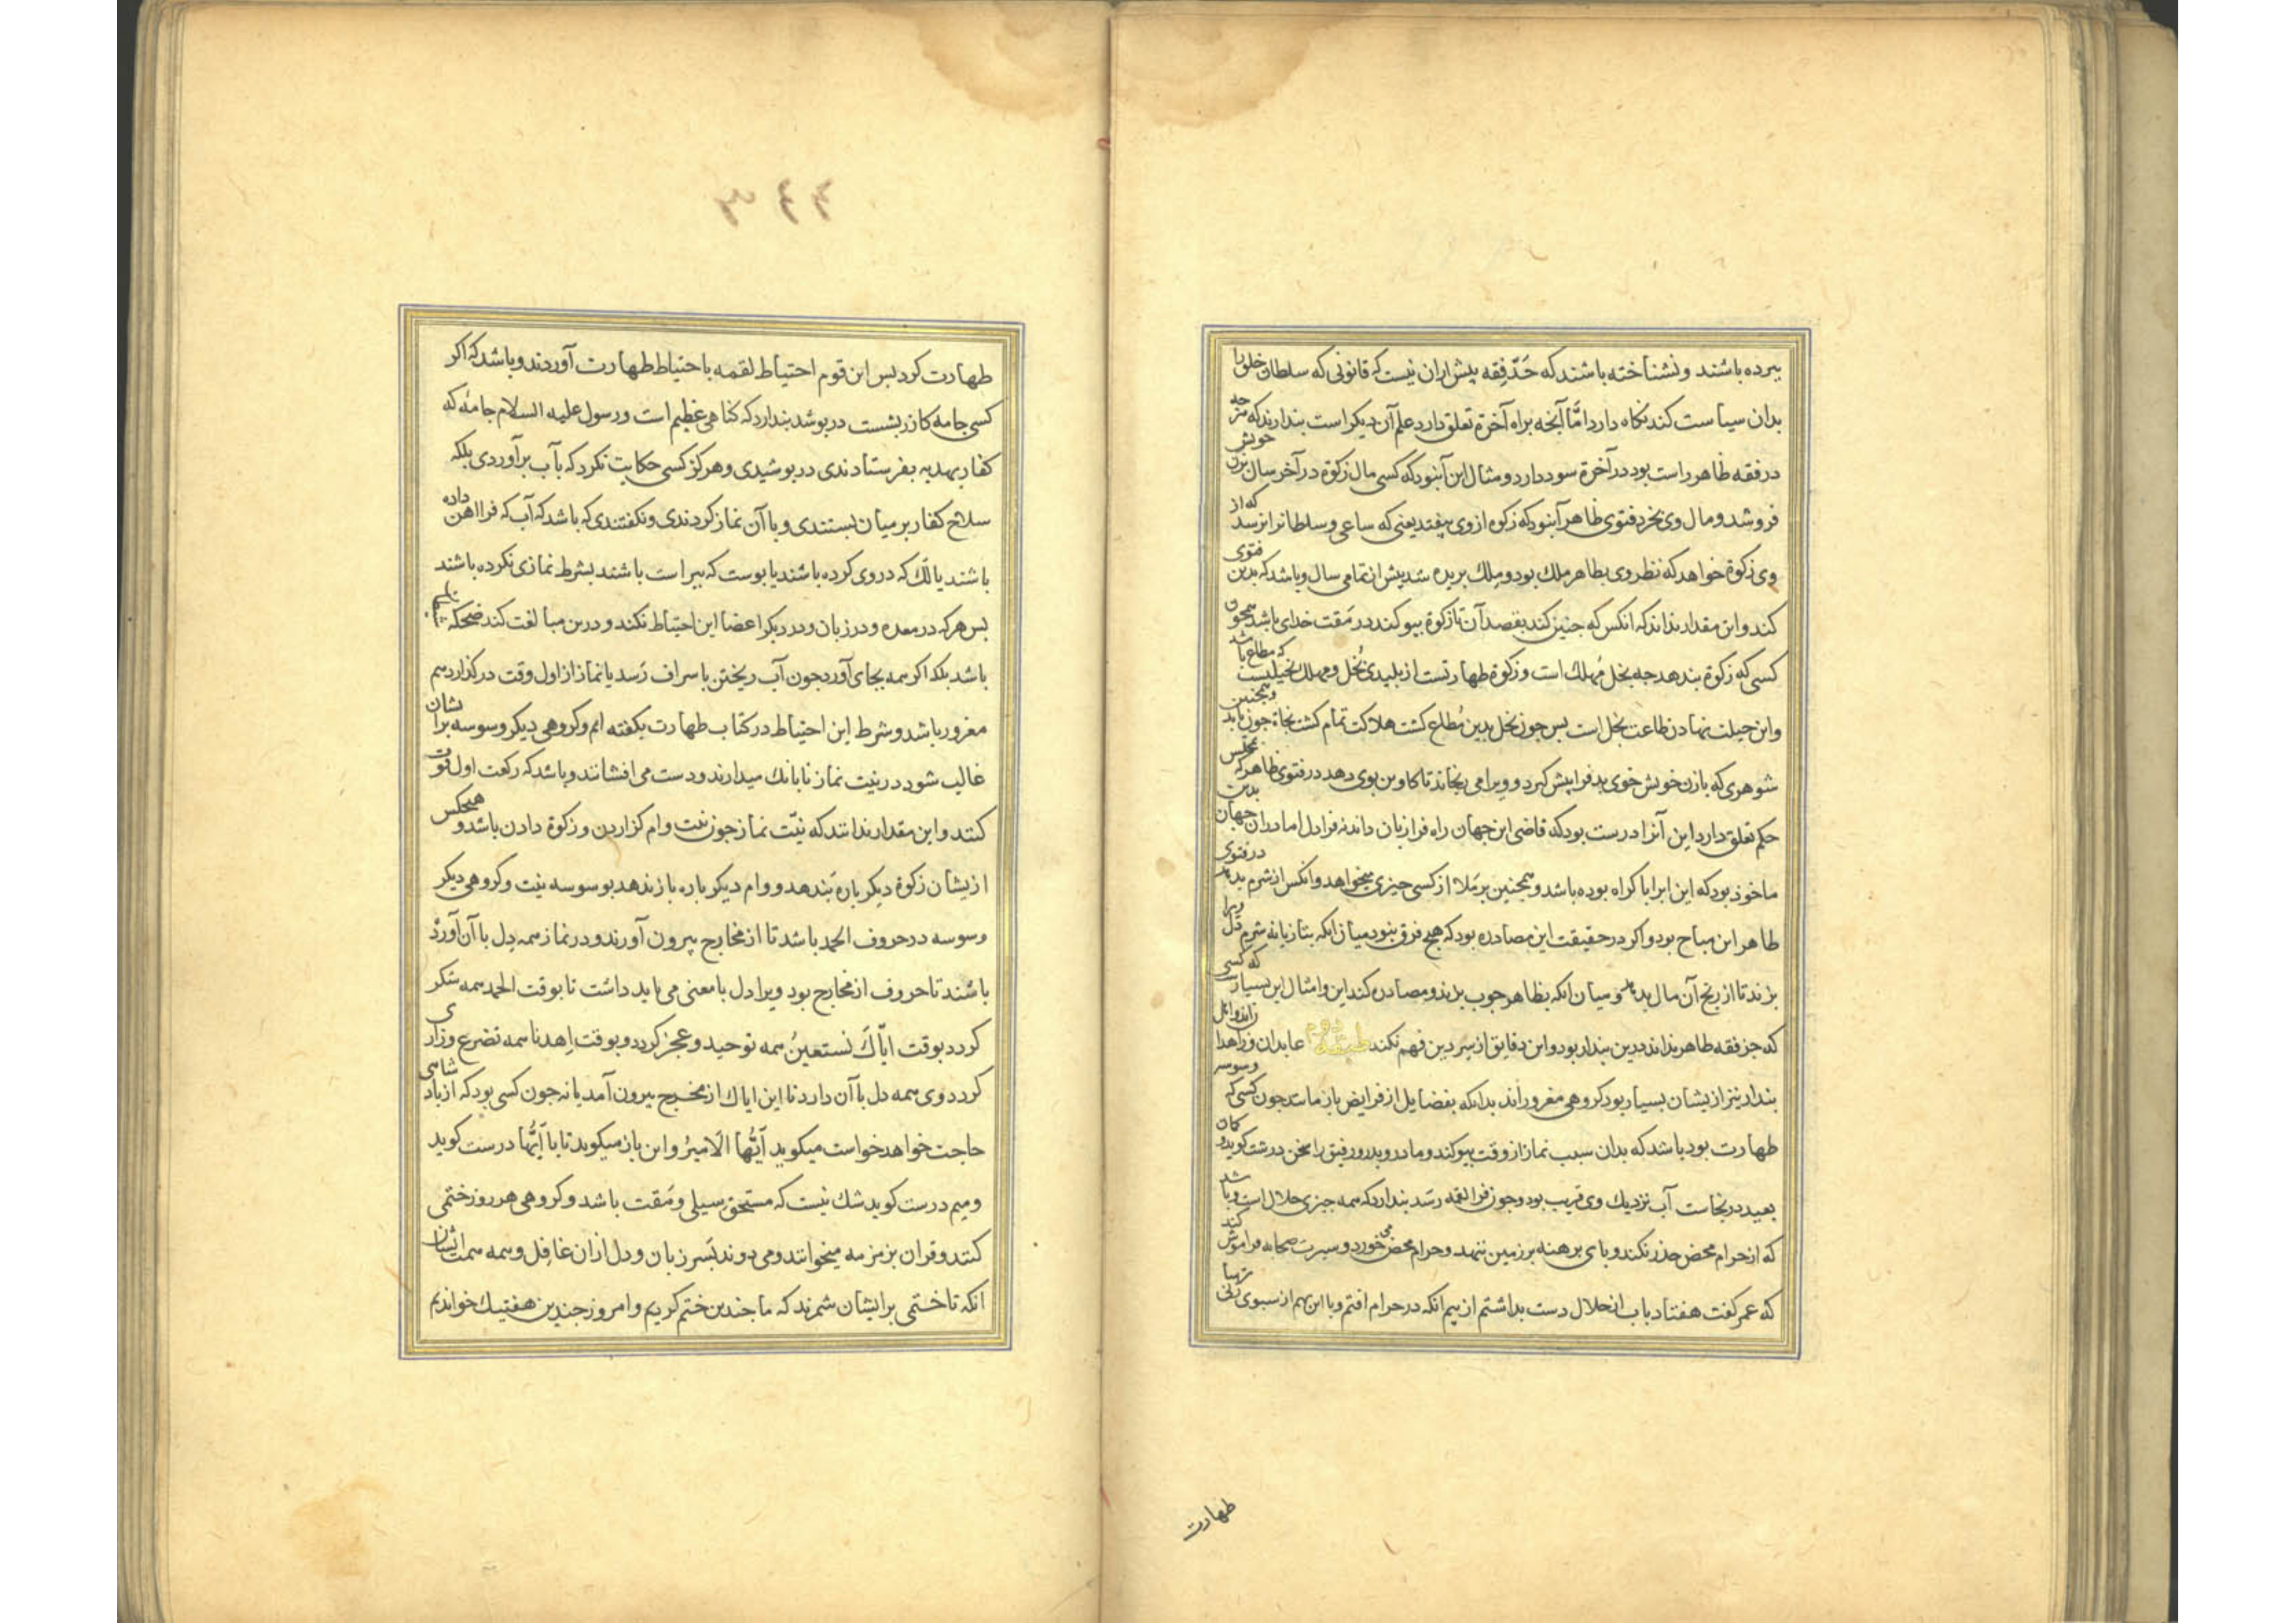 ببرده باشند و نشناخته باشند که حَدّ فقه پیش ازان نیست که قانونی که سلطان خلق را
بدان سیاست کند نکاه دارد امّا آنچه براه آخرة تعلق دارد علم آن دیکر است بندارند که هرجه
در فقه ظاهر راست بود در آخرة سود دارد و مثال این آنبود که کسی مال زکوة در آخر سال بزن خویش
فروشد و مال وی بخرد فتوی ظاهر آنبود که زکوه از وی بیفتد یعنی که ساعی و سلطانرا نرسد که از
وی زکوة خواهد که نظر وی بظاهر ملك بود و مِلك بریده شد پیش از تمامی سال و باشد که بدین فتوی
کند و این مقدار نداند که انکس که جنین کند بقصد آن تا زکوة بیوکند در مَقت خدای باشد همجون
کسی که زکوة بندهد جه بخل مُهلك است و زکوة طهارتست از بلیدی بُخل و مهلك بخیلیست که مطاع باشد
و این حیلت نهادن طاعت بخل است بس جون بخل بدین مُطاع کشت هلاکت تمام کشت نجاة جون یابد و همجنین
شوهری که با زن خویش خوی بد فرا پیش کیرد و ویرا می رنجاند تا کاوین بوی دهد در فتوی ظاهر که بمجلس
حکم تعلق دارد این آنرا درست بود که قاضی این جهان راه فرا زبان داند نه فرا دل اما دران جهان بدین
ماخوذ بود که این ابرا باکراه بوده باشد و همجنین بر ملا از کسی جیزی میخواهد و انکس از شرم بدهد در فتوی
ظاهر این مباح بود و اکر در حقیقت این مصادره بود که هیچ فرق نبود میان انکه بتازیانه شرم دل ویرا
بزند تا از رنج آن مال بدهد و میان انکه بظاهر جوب بزند و مصادره کند این و امثال این بسیارست که کسی
که جز فقه ظاهر نداند درین بندار بود و این دقایق از سِر دین فهم نکند طبقه دوم عابدان و زاهدانند و اهل
بندار نیز از یشان بسیار بود کروهی مغرور اند بدانکه بفضایل از فرایض باز مانند جون کسی که وسوسه
طهارت بود باشد که بدان سبب نماز از وقت بیوکند و مادر و بدر و رفیق را سخن درشت کوید و کان
بعید در نجاست آب نزدیك وی قریب بود و جون فرا لقمه رسَد بندارد که همه جیزی حلال است و باشد
که از حرام محض حذر نکند و بای برهنه بر زمین ننهد و حرام محض می خورد و سیرت صحابه فراموش کند
که عمر کفت هفتاد باب از حلال دست بداشتم از بیم انکه در حرام افتم و با این هم از سبوی زنی ترسا
طهارت
طهارت کرد بس این قوم احتیاط لقمه باحتیاط طهارت آوردند و باشد که اکر
کسی جامه کازر بشست در بوشد بندارد که کناهی عظیم است و رسول علیه السلام جامهٔ که
کفار بهدیه بفرستادندی در بوشیدی و هرکز کسی حکایت نکرد که بآب برآوردی بلکه
سلاح کفار بر میان بستندی و با آن نماز کردندی و نکفتندی که باشد که آب که فرا اهن داده
باشند یا لَك که در وی کرده باشند یا بوست که بیراست باشند بشرط نمازی نکرده باشند
بس هرکه در معده و در زبان و در دیکر اعضا این احتیاط نکند و درین مبالغت کند ضحکه
باشد بلکه اکر همه بجای آورد جون آب ریختن باسراف رسد یا نماز از اول وقت در کذارد هم
مغرور باشد و شرط این احتیاط در کتاب طهارت بکفته ایم و کروهی دیکر وسوسه برایشان
غالب شود در نیت نماز تا بانك میدارند و دست می افشانند و باشد که رکعت اول فوت
کنند و این مقدار ندانند که نیّت نماز جون نیت وام کزاردن و زکوة دادن باشد و هیجکس
از یشان زکوة دیکر باره بَندهد و وام دیکر باره باز ندهد بوسوسه نیت و کروهی دیکر
وسوسه در حروف الحمد باشد تا از مخارج بیرون آورند و در نماز همه دل با آن آورده
باشند تا حروف از مخارج بود و یرا دل با معنی می باید داشت تا بوقت الحمد همه شکر
کردد بوقت ایّاكَ نَستعینُ همه توحید و عجز کردد و بوقت اِهدنا همه تضرع و زاری
کردد وی همه دل با آن دارد تا این ایاك از مخرج بیرون آمد یا نه جون کسی بود که از بادشاهی
حاجت خواهد خواست میکوید اَیُّها الاَمیرُ و این باز میکوید تا یا اَیُّها درست کوید
و میم درست کوید شك نیست که مستحق سیلی و مَقت باشد و کروهی هر روز ختمی
کنند و قران بزمزمه میخوانند و می دوند بَسر زبان و دل ازان غافِل و همه همت ایشان
انکه تا ختمی بر ایشان شمرند که ما جندین ختم کردیم و امروز جندین هفتیك خواندیم